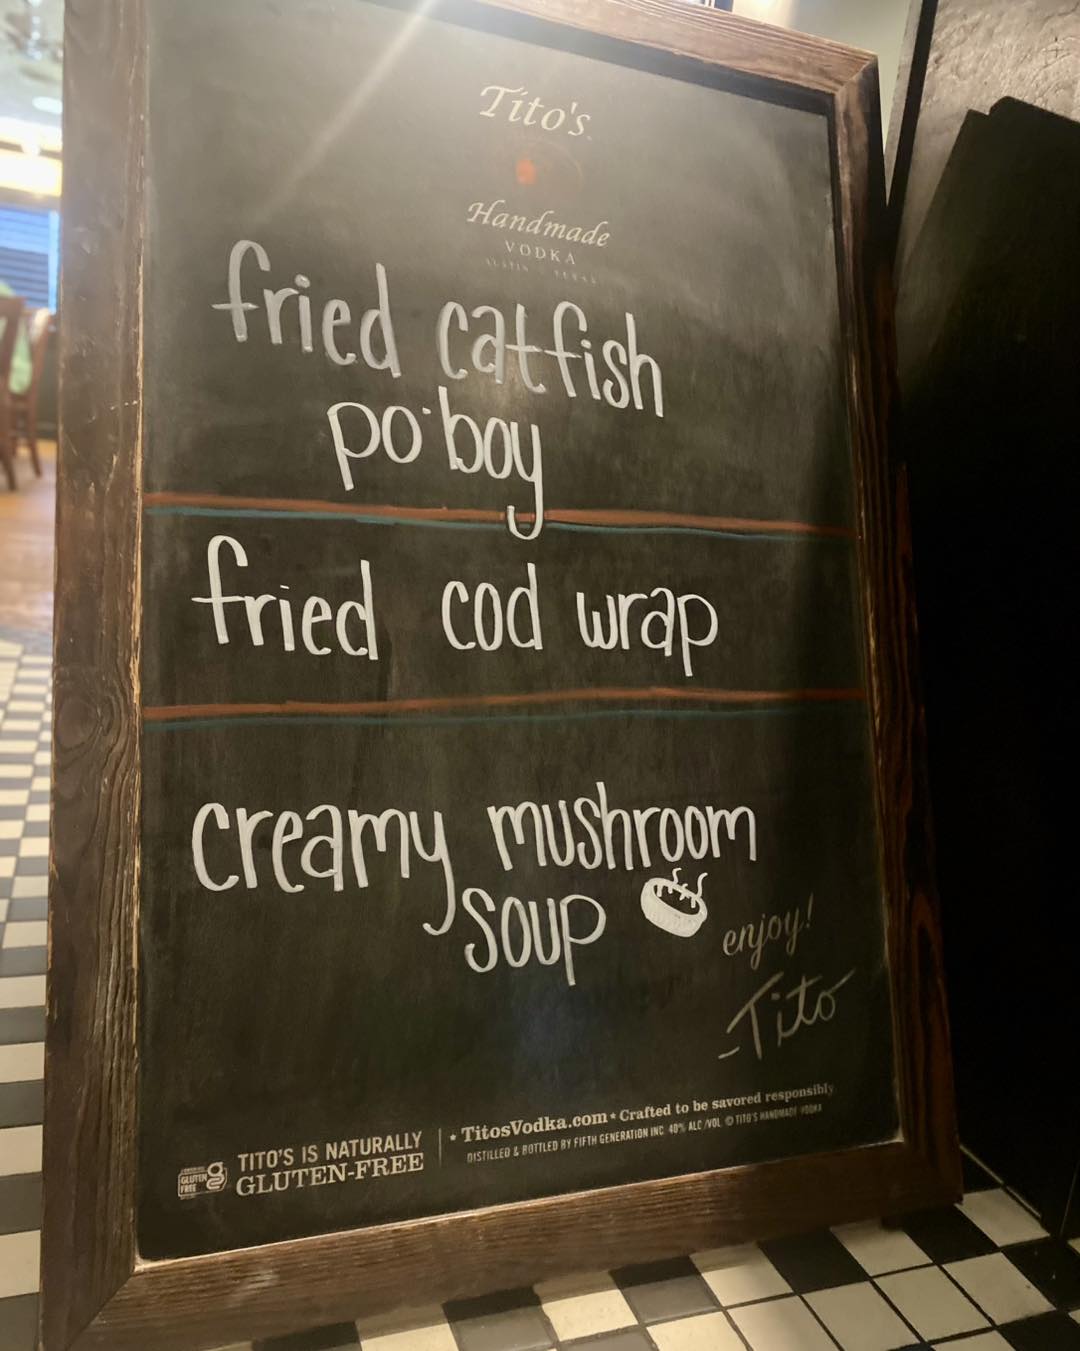 Tito's
Handmade
VODKA
AUSTIN TEXAS
fried catfish
po'boy
fried cod wrap
creamy mushroom
soup
enjoy!
-Tito
GLUTEN
FREE
TITO'S IS NATURALLY
GLUTEN-FREE
* TitosVodka.com * Crafted to be savored responsibly
DISTILLED & BOTTLED BY FIFTH GENERATION INC. 40% ALC./VOL. © TITO'S HANDMADE VODKA